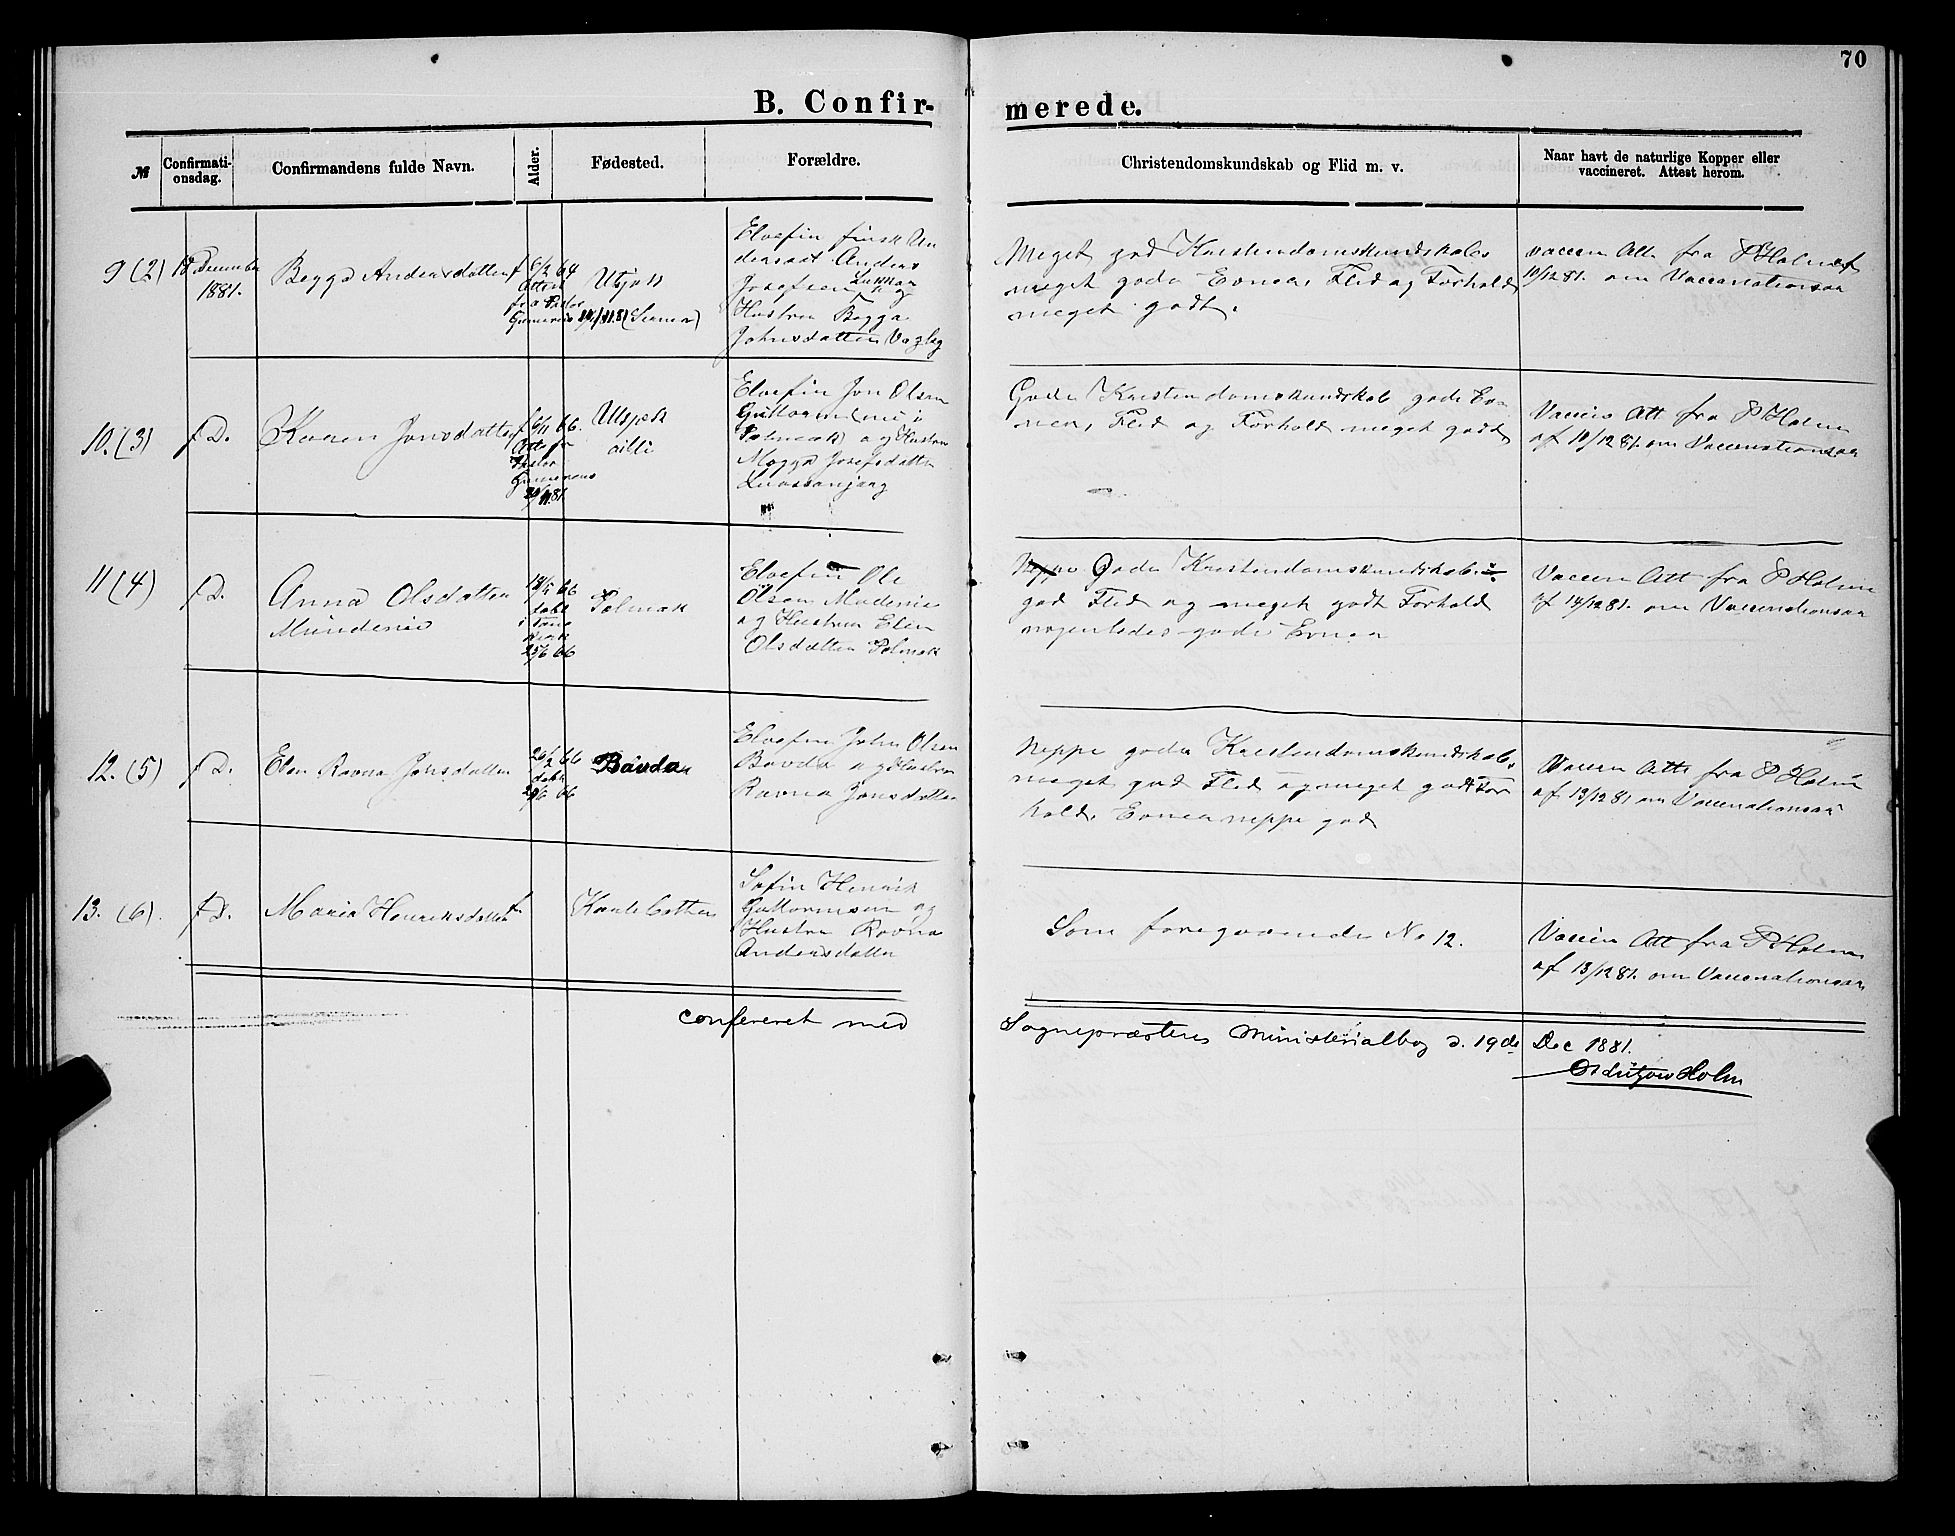 70
B. Confir- merede.
№
Confirmati-
onsdag.
Confirmandens fulde Navn.
Alder.
Fødested.
Forældre.
Christendomskundskab og Flid m. v.
Naar havt de naturlige Kopper eller
vaccineret. Attest herom.
9 (2)
18 December
1881.
Begga Andersdatter
f 6/2 64
Attest
fra Pastor
Utsjok
Elvefin finsk An
Anders
Josefsen
Hustru Begga
Johnsdatter
Meget god Kristendomskundskab
meget gode Evner, Flid og Forhold
meget godt.
Vaccin Att fra P Holm af
10/12 81 om Vaccinationen
10. (3)
f D.
Karen Jonsdatter
f 6/11 66.
Att fr
Pastor
Utsjok
Elvefin Jon Olsen
Polmak) og Hustru
Magga Josefsdatter
Gode Kristendomskundskab gode Ev-
ner, Flid og Forhold meget godt
Vaccin Att fra P Holm
af 10/12 81. om Vaccinationen
11 (4)
f D.
Anna Olsdatter
Mundenie
14/5 66
døbt
i Tana
25/6 66
Polmak
Elvefin Ole
Olsen Mudenie
og Hustru Elen
Olsdatter Polmak
Neppe Gode Kristendomskundskab
god Flid og meget godt Forhold
nogenledes gode Evner
Vaccin Att fra P Holm
af 14/12 81. om Vaccinationen
12. (5)
f D.
Elen Ravna Jonsdatter
20/2 66
døbt
29/6 66
Bavda
Elvefin John Olsen
Bavda og Hustru
Ravna Jonsdatter
Neppe gode Kristendomskundskab,
meget god Flid og meget godt For
hold, Evner neppe god
Vaccin Att fra P Holm
af 13/12 81 om Vaccinationen
13. (6).
f D.
Maria Henriksdatter
Søfin Henrik
Guttormsen og
Hustru Ravna
Andersdatter
Som foregaaende No 12.
Vaccin Att fra P Holm
af 13/12 81. om Vaccinationen
confereret med Sognepræstens Ministerialbog d. 19de Dec 1881.
Holm